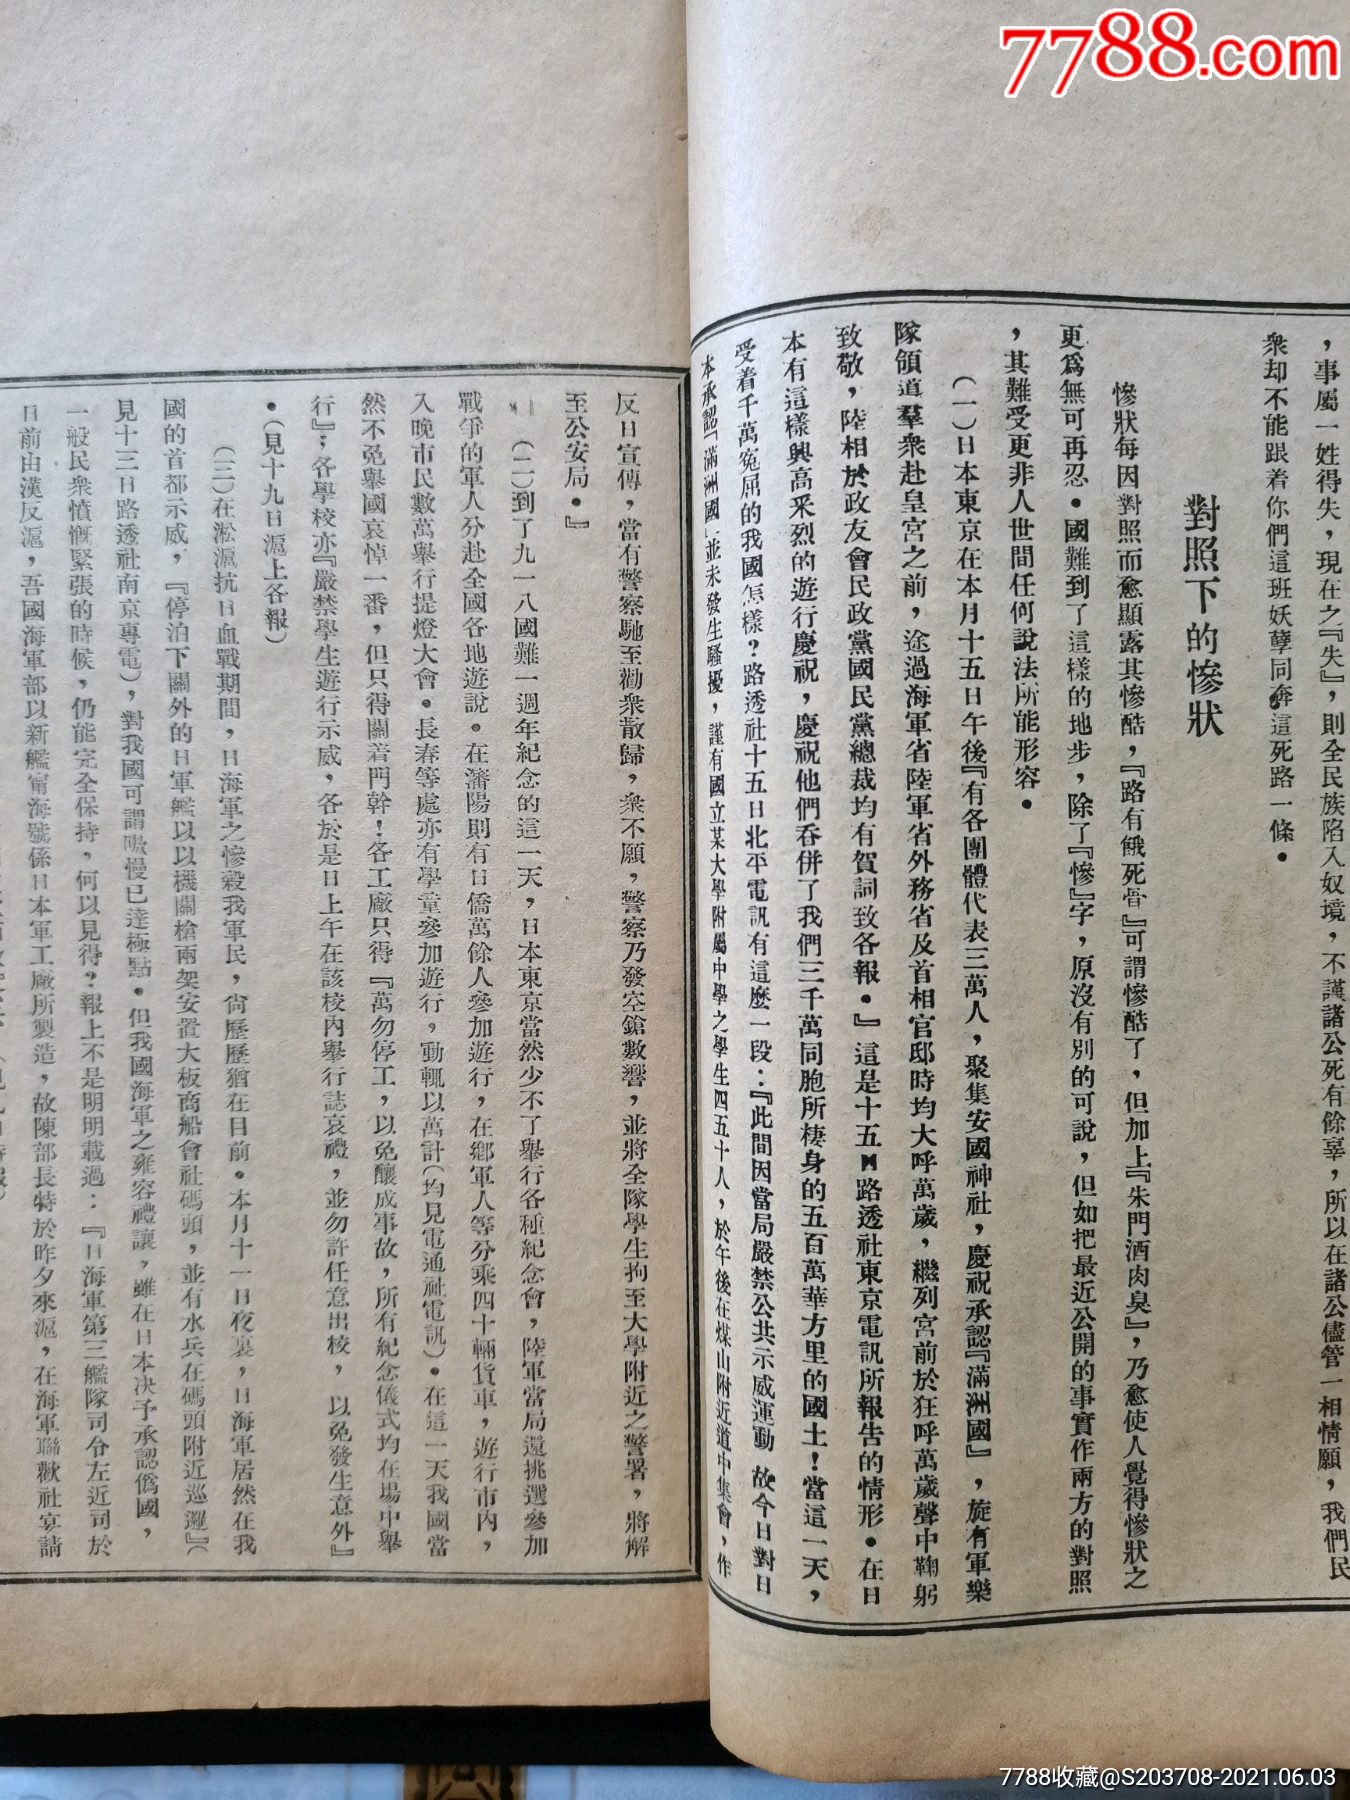 7788.com
，事屬一姓得失，現在之『失』，則全民族陷入奴境，不謹諸公死有餘辜，所以在諸公儘管一相情願，我們民
衆却不能跟着你們這班妖孽同奔這死路一條。
對照下的慘狀
慘狀每因對照而愈顯露其慘酷，『路有餓死骨』可謂慘酷了，但加上『朱門酒肉臭』，乃愈使人覺得慘狀之
更爲無可再忍。國難到了這樣的地步，除了『慘』字，原沒有別的可說，但如把最近公開的事實作兩方的對照
，其難受更非人世間任何說法所能形容。
（一）日本東京在本月十五日午後『有各團體代表三萬人，聚集安國神社，慶祝承認『滿洲國』，旋有軍樂
隊領道羣衆赴皇宮之前，途過海軍省陸軍省外務省及首相官邸時均大呼萬歲，繼列宮前於狂呼萬歲聲中鞠躬
致敬，陸相於政友會民政黨國民黨總裁均有賀詞致各報。』這是十五日路透社東京電訊所報告的情形。在日
本有這樣興高采烈的遊行慶祝，慶祝他們吞併了我們三千萬同胞所棲身的五百萬華方里的國土！當這一天，
受着千萬寃屈的我國怎樣？路透社十五日北平電訊有這麼一段：『此間因當局嚴禁公共示威運動　故今日對日
本承認「滿洲國」並未發生騷擾，謹有國立某大學附屬中學之學生四五十人，於午後在煤山附近道中集會，作
反日宣傳，當有警察馳至勸衆散歸，衆不願，警察乃發空鎗數響，並將全隊學生拘至大學附近之警署，將解
至公安局。』
（二）到了九一八國難一週年紀念的這一天，日本東京當然少不了舉行各種紀念會，陸軍當局還挑選參加
戰爭的軍人分赴全國各地遊說。在瀋陽則有日僑萬餘人參加遊行，在鄉軍人等分乘四十輛貨車，遊行市內，
入晚市民數萬舉行提燈大會。長春等處亦有學童參加遊行，動輒以萬計（均見電通社電訊）。在這一天我國當
然不免舉國哀悼一番，但只得關着門幹！各工廠只得『萬勿停工，以免釀成事故，所有紀念儀式均在場中舉
行』；各學校亦『嚴禁學生遊行示威，各於是日上午在該校內舉行誌哀禮，並勿許任意出校，以免發生意外』
。（見十九日滬上各報）
（三）在淞滬抗日血戰期間，日海軍之慘殺我軍民，尙歷歷猶在日前。本月十一日夜裏，日海軍居然在我
國的首都示威，『停泊下關外的日軍艦以以機關槍兩架安置大板商船會社碼頭，並有水兵在碼頭附近巡邏』（
見十三日路透社南京專電），對我國可謂傲慢已達極點。但我國海軍之雍容禮讓，雖在日本决予承認僞國，
一般民衆憤慨緊張的時候，仍能完全保持，何以見得？報上不是明明載過：『日海軍第三艦隊司令左近司於
日前由漢反滬，吾國海軍部以新艦甯海號係日本軍工廠所製造，故陳部長特於昨夕來滬，在海軍聯歡社宴請
7788收藏@S203708-2021.06.03